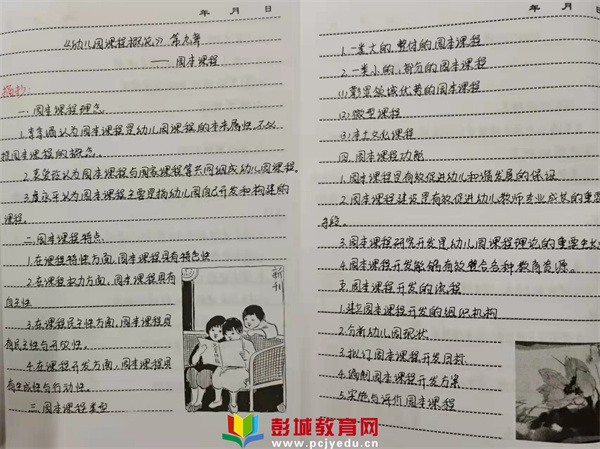 年 月 日
《幼儿园课程概论》第九章
——园本课程
摘抄:
一.园本课程概念
1.李季湄认为园本课程是幼儿园课程的本来属性,不必
提园本课程的概念。
2.袁爱玲认为园本课程与国家课程等共同组成幼儿园课程。
3.虞永平认为园本课程主要是指幼儿园自己开发和构建的
课程。
二.园本课程特点
1.在课程特性方面,园本课程具有特色性
2.在课程权力方面,园本课程具有
自主性
3.在课程民主性方面,园本课程具
有民主性与开放性。
4.在课程开发方面,园本课程具
有生成性与行动性。
三.园本课程类型
新刊
年 月 日
1.一类大的、整体的园本课程
2.一类小的、部分的园本课程
(1)彰显领域优势的园本课程
(2)微型课程
(3)本土文化课程
四.园本课程功能
1.园本课程是有效促进幼儿和谐发展的保证
2.园本课程建设是有效促进幼儿教师专业成长的重要
手段。
3.园本课程研究开发是幼儿园课程理论的重要生长
4.园本课程开发能够有效整合各种教育资源。
五.园本课程开发的流程
1.建立园本课程开发的组织机构
2.分析幼儿园现状
3.拟订园本课程开发目标
4.编制园本课程开发方案
5.实施与评价园本课程
彭城教育网
www.pcjyedu.cn